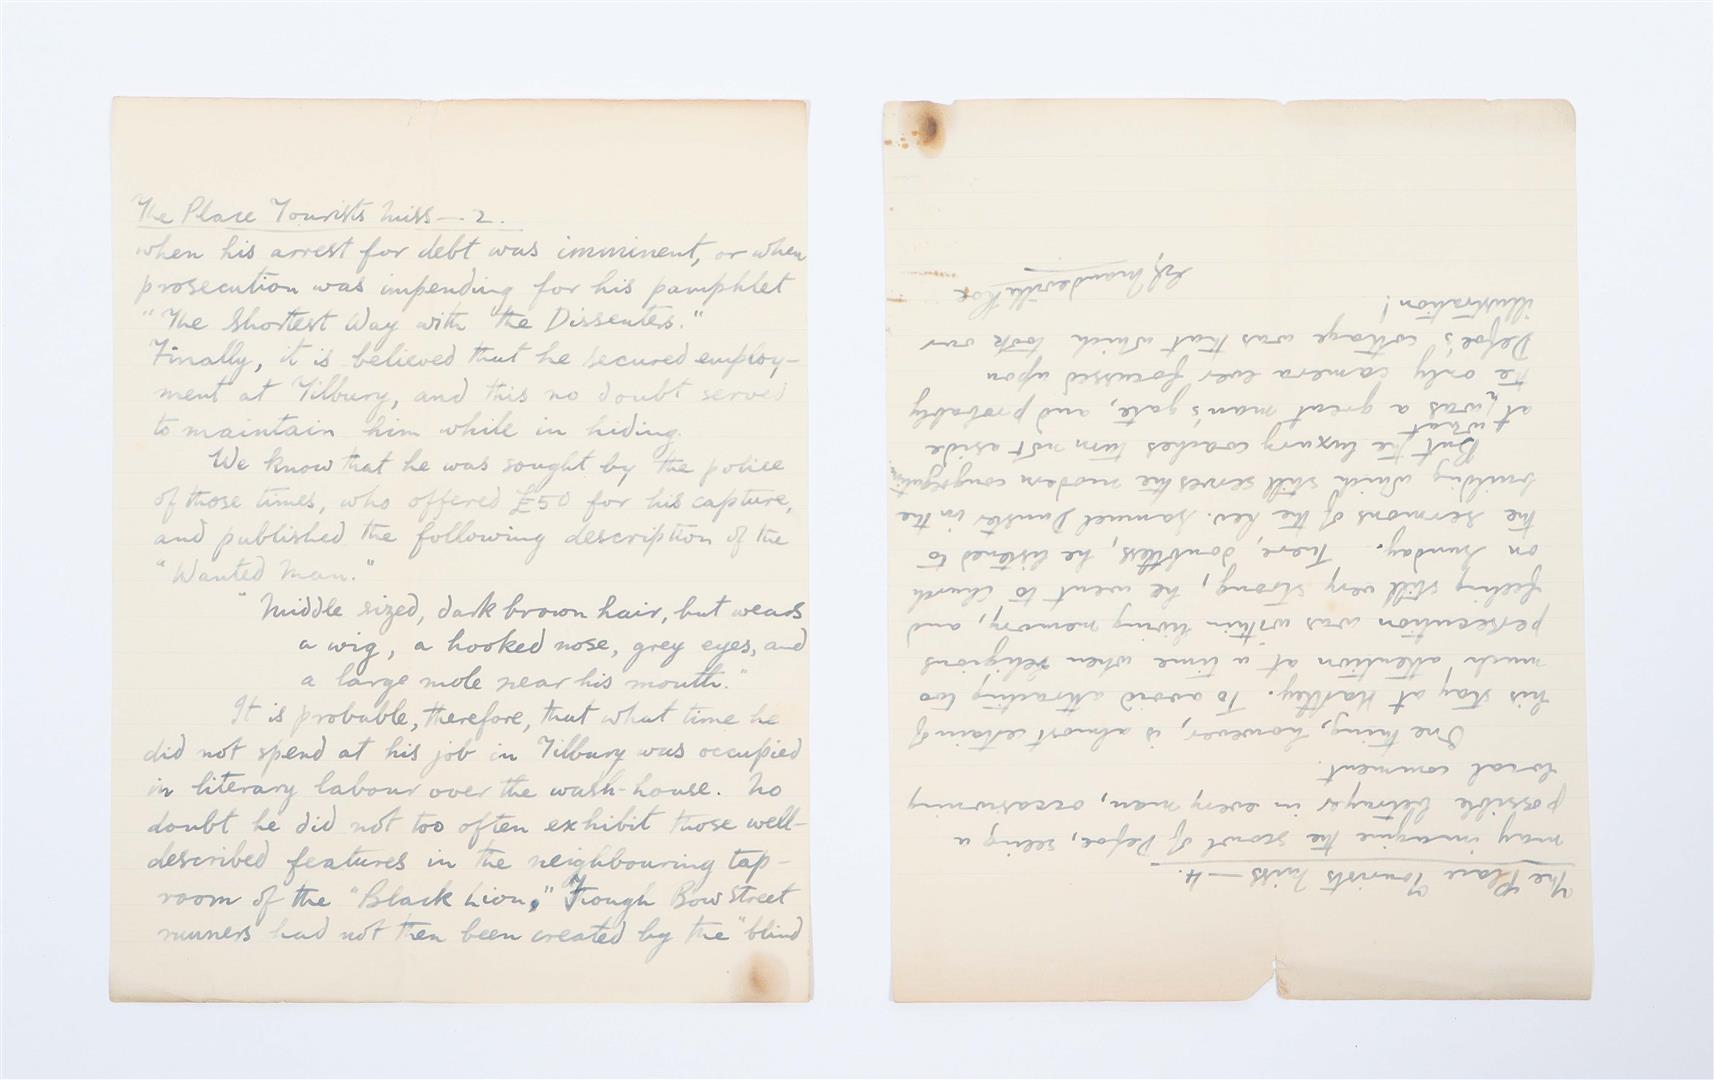 The Place Tourists Miss — 2.
when his arrest for debt was imminent, or when
prosecution was impending for his pamphlet
"The Shortest Way with the Dissenters."
Finally, it is believed that he secured employ-
ment at Tilbury, and this no doubt served
to maintain him while in hiding.
We know that he was sought by the police
of those times, who offered £50 for his capture,
and published the following description of the
"Wanted Man."
"Middle sized, dark brown hair, but wears
a wig, a hooked nose, grey eyes, and
a large mole near his mouth."
It is probable, therefore, that what time he
did not spend at his job in Tilbury was occupied
in literary labour over the wash-house. No
doubt he did not too often exhibit those well-
described features in the neighbouring tap-
room of the "Black Lion," Though Bow Street
runners had not then been created by the "blind
The Place Tourists Miss — 4.
may imagine the scowl of Defoe, seeing a
possible betrayer in every man, occasioning
local comment.
One thing, however, is almost certain of
his stay at Hartley. To avoid attracting too
much attention at a time when religious
persecution was within living memory, and
feeling still very strong, he went to church
on Sunday. There, doubtless, he listened to
the sermons of the Rev. Samuel Dunster in the
building which still serves the modern congregation.
But the luxury coaches turn not aside
at what was a great man's gate, and probably
the only camera ever focussed upon
Defoe's cottage was that which took our
illustration!
Mandeville Roe